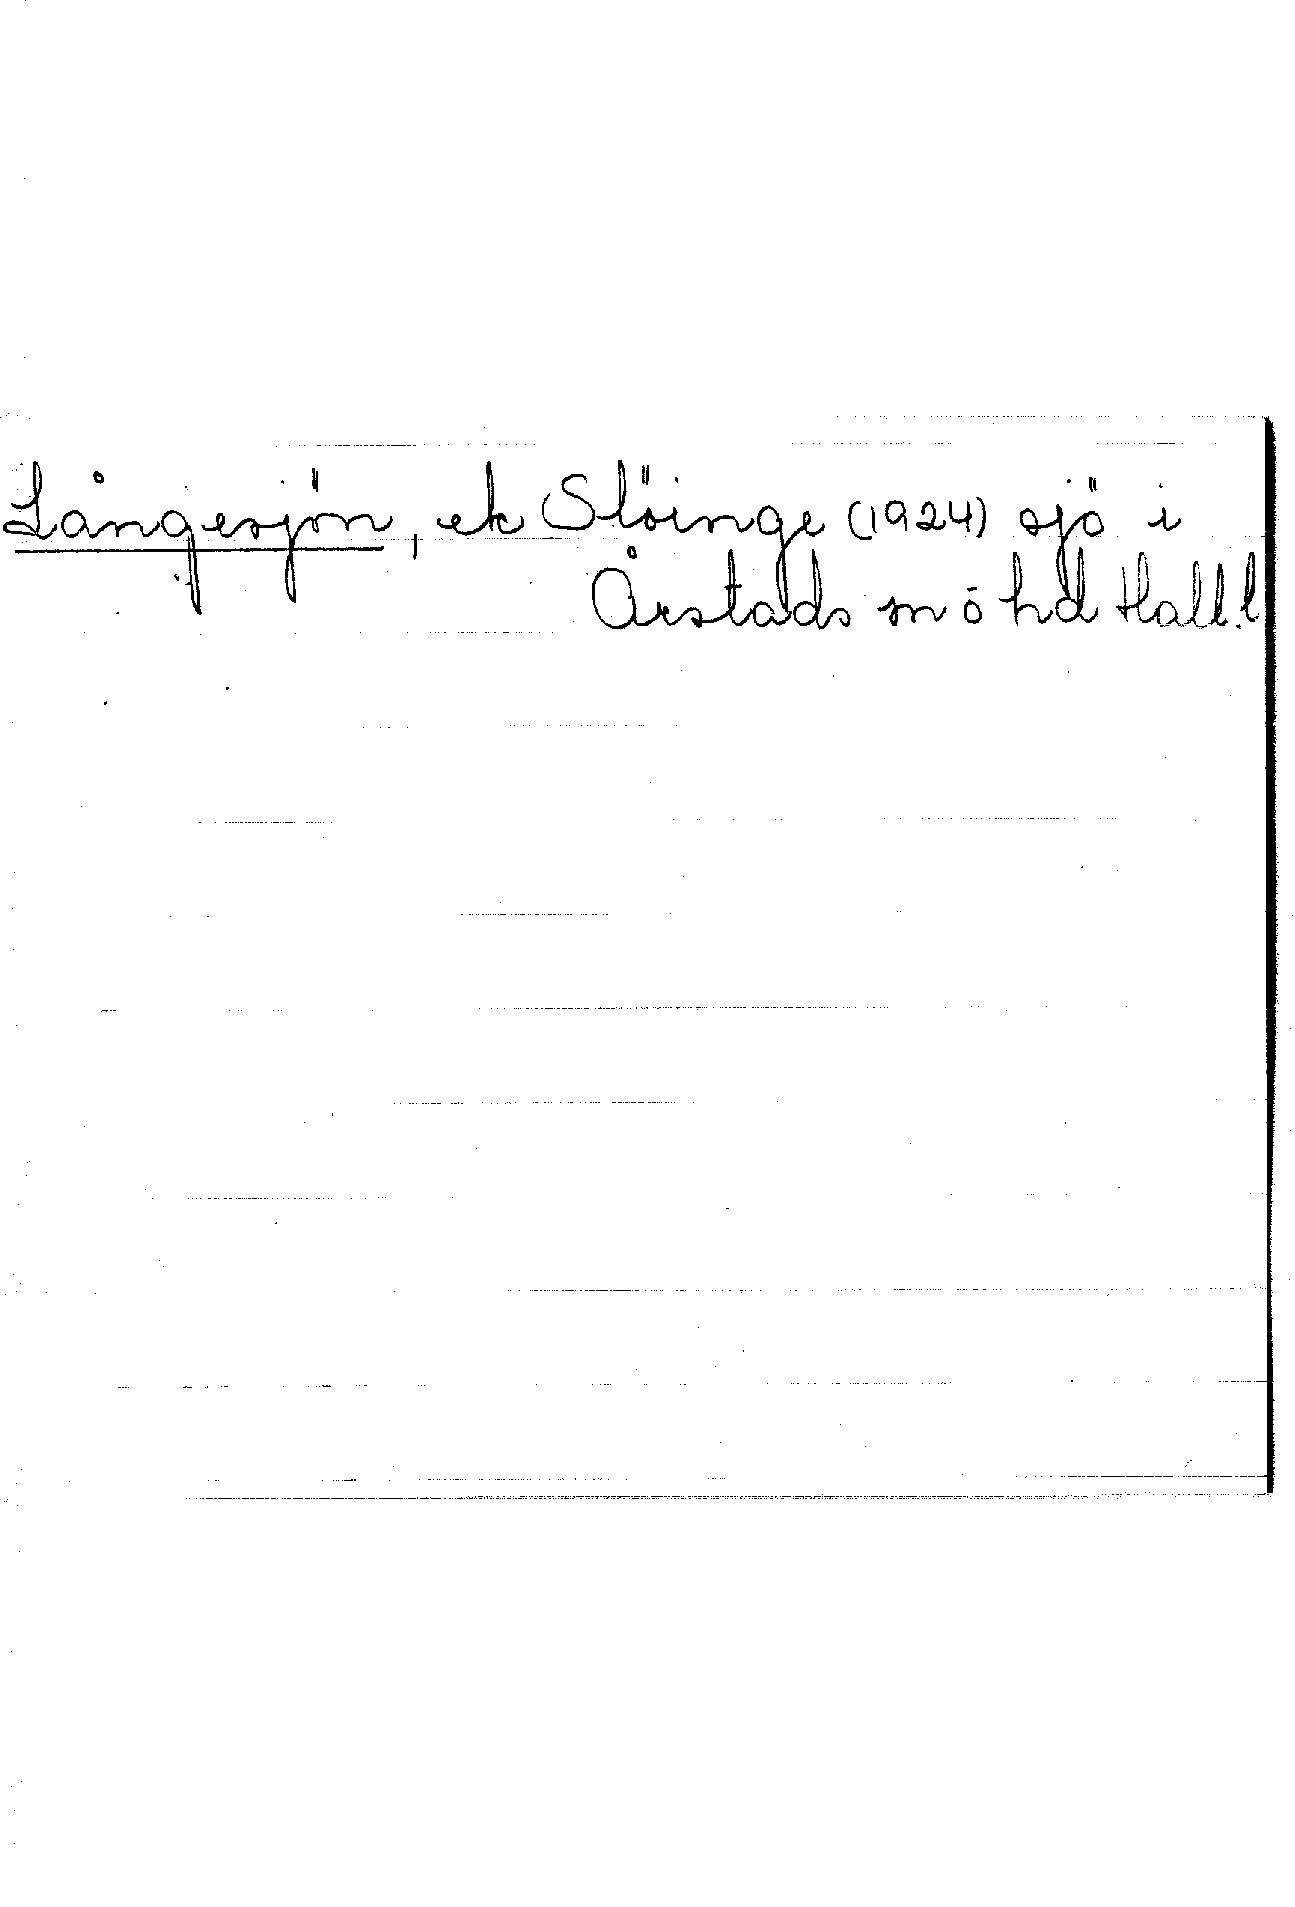 Långesjön, ek Slöinge (1924) sjö i
Årstads m ö hd Hall.l